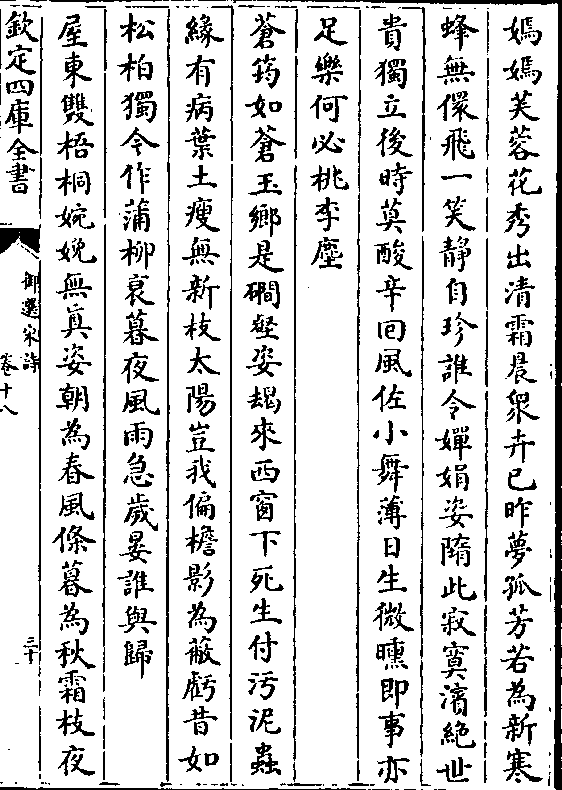 嫣嫣芙蓉花秀出清霜晨衆卉已昨夢孤芳若為新寒
蜂無儇飛一笑静自珍誰令嬋娟姿隋此寂寞濱絶世
貴獨立後時莫酸辛回風佐小舞薄日生微曛即事亦
足樂何必桃李塵
蒼筠如蒼玉鄉是磵壑姿朅來西窗下死生付污泥蟲
緣有病葉土瘦無新枝太陽豈我偏檐影為蔽虧昔如
松柏獨今作蒲柳衰暮夜風雨急歲晏誰與歸
屋東雙梧桐婉娩無真姿朝為春風條暮為秋霜枝夜
欽定四庫全書
御選宋詩
卷十八
三十